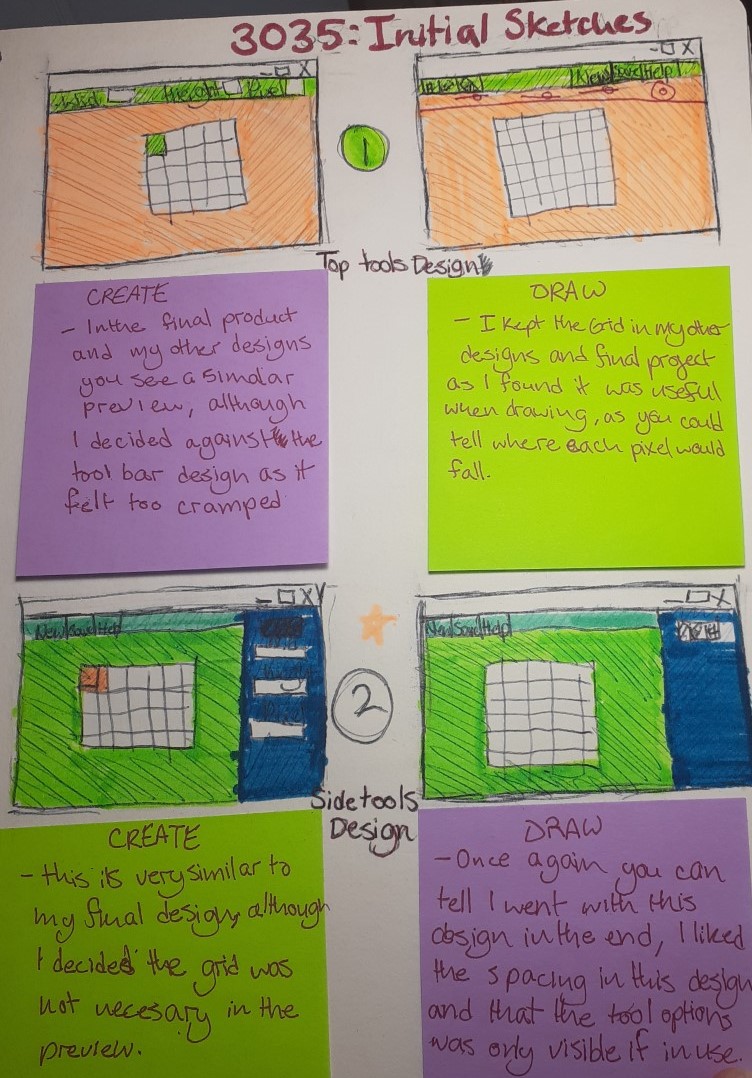 3035: Initial Sketches
X
Height Pixel
X
New Save Help
1
Top tools Design
CREATE
- In the final product
and my other designs
you see a Simular
preview, although
I decided against the
tool bar design as it
felt too cramped
DRAW
- I kept the Grid in my other
designs and final project
as I found it was useful
when drawing, as you could
tell where each pixel would
fall.
X
New Save Help
2
X
New Save Help
Side tools
Design
CREATE
- this is very similar to
my final design, although
I decided the grid was
not necesary in the
preview.
DRAW
- Once again you can
tell I went with this
design in the end, I liked
the spacing in this design
and that the tool options
was only visible if in use.